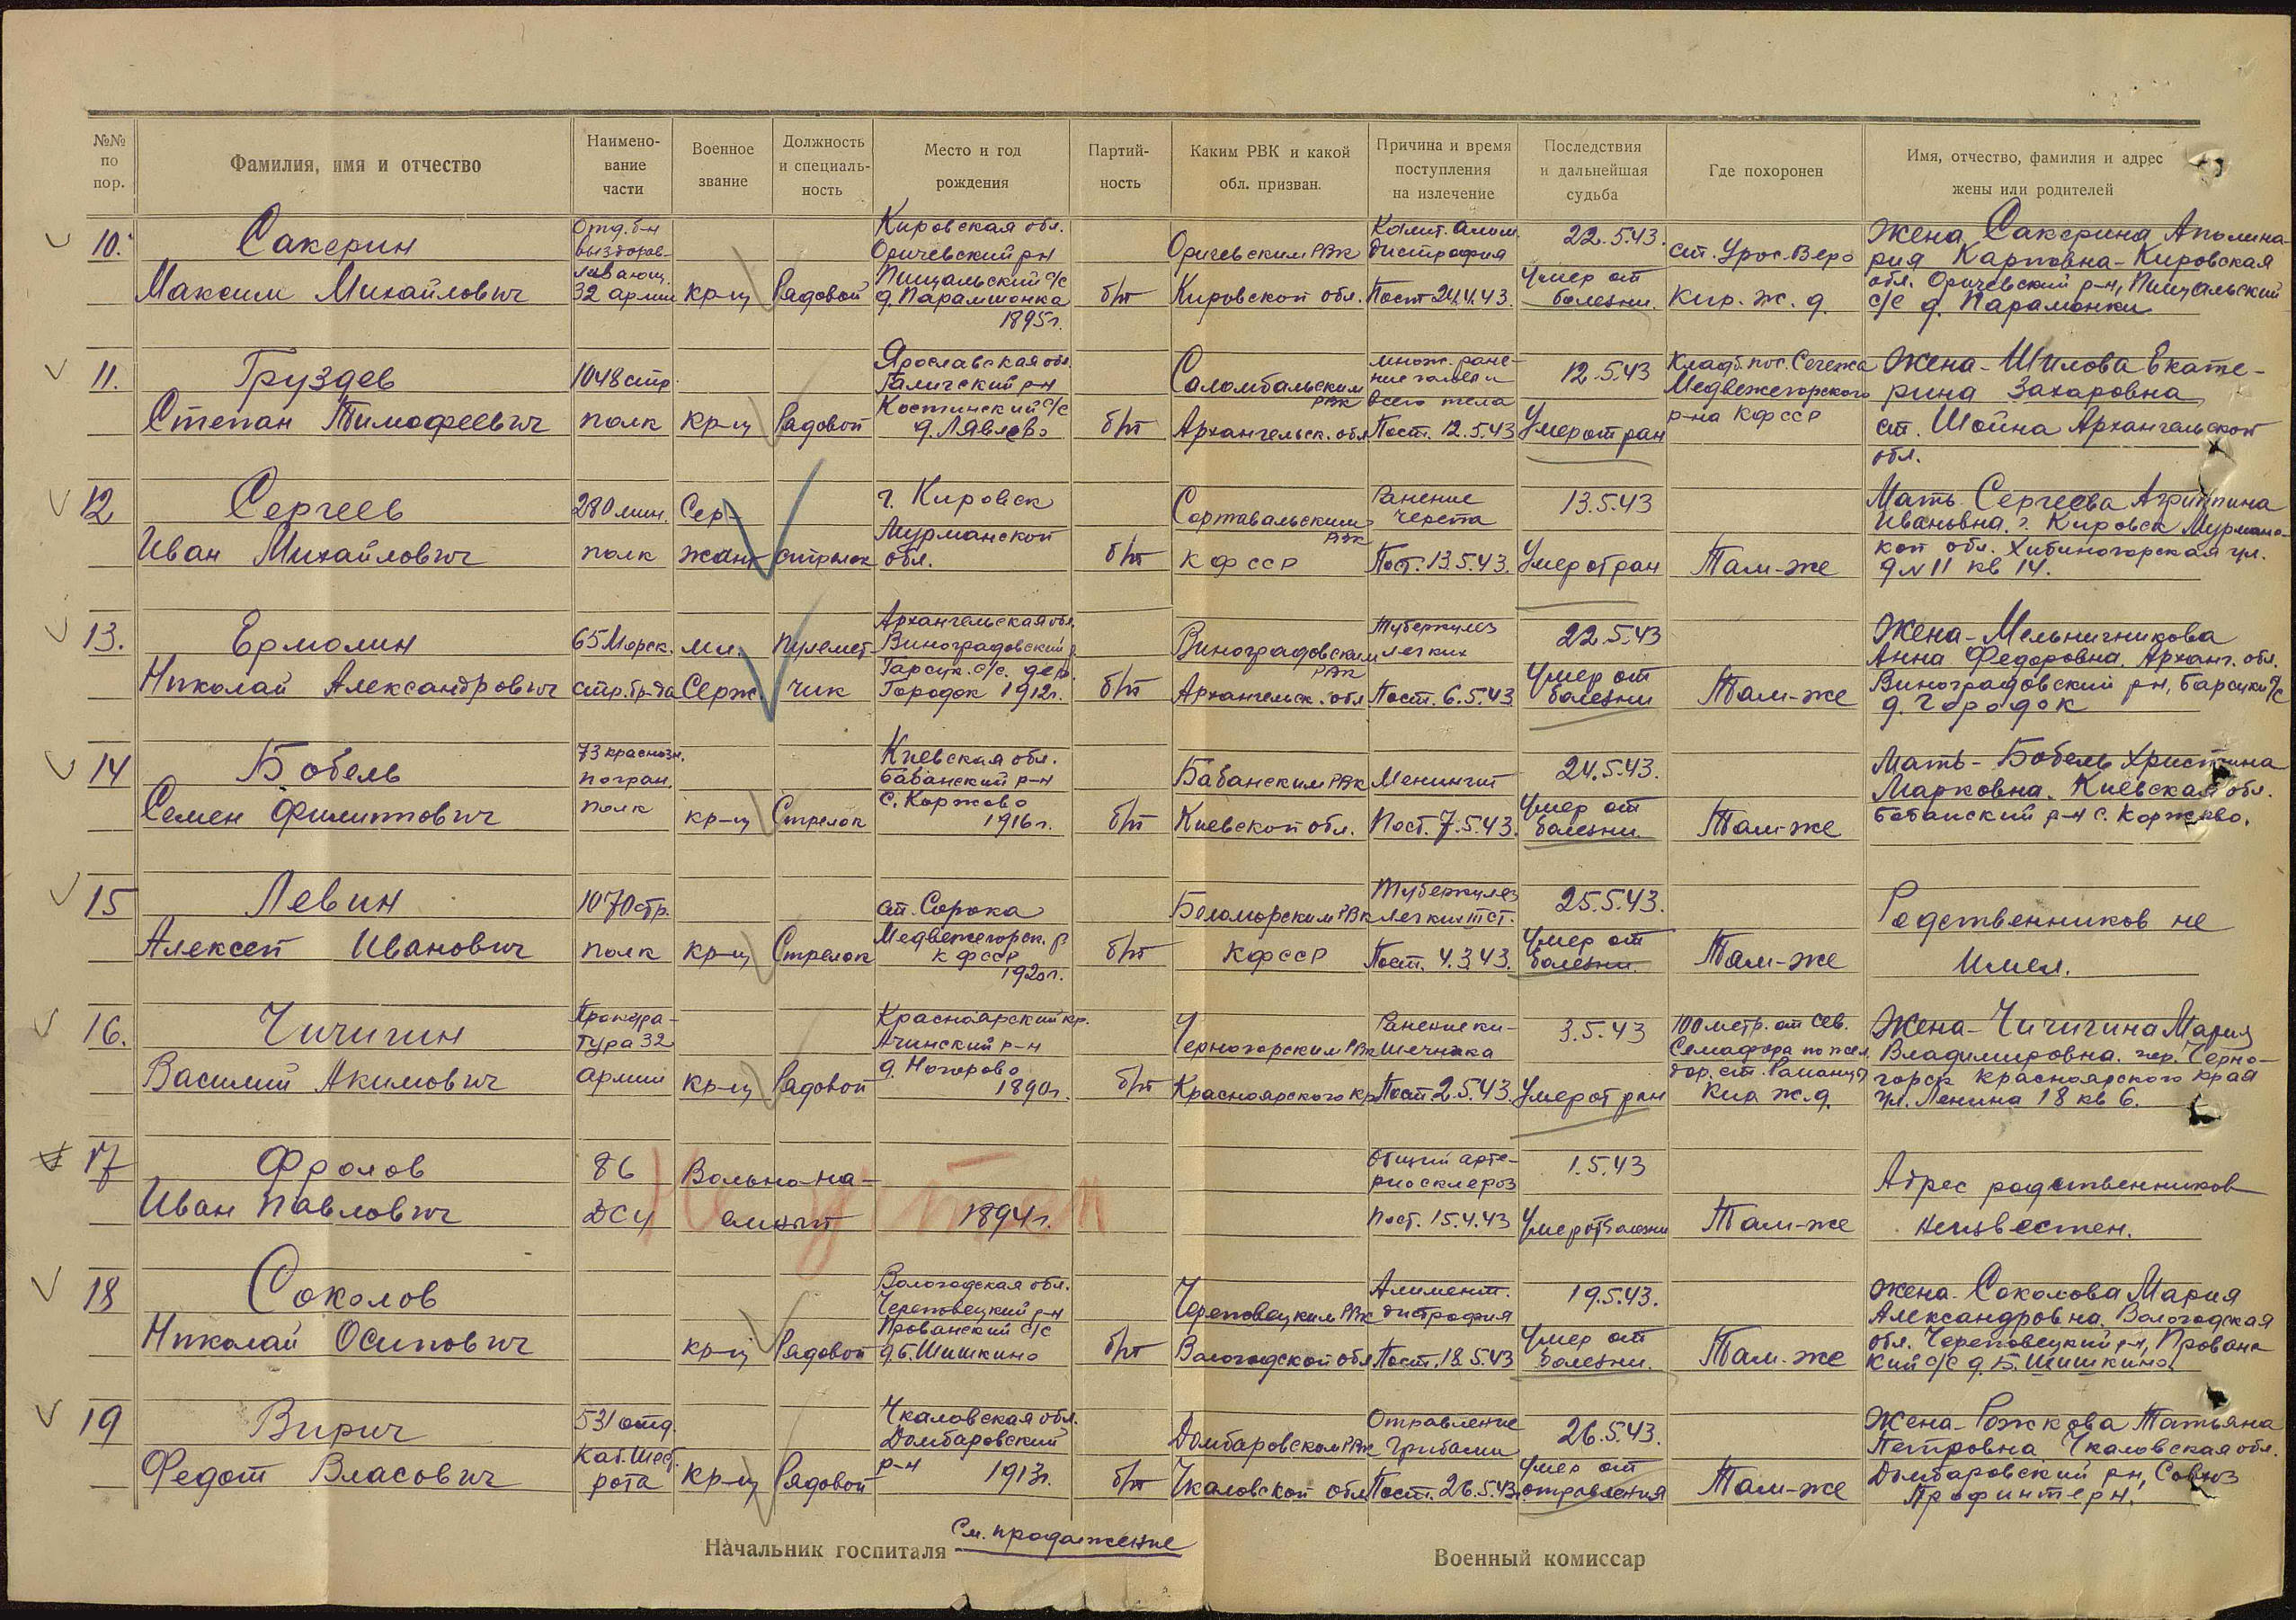 №№ по пор.
Фамилия, имя и отчество
Наимено-вание части
Военное звание
Должность и специаль-ность
Место и год рождения
Партий-ность
Каким РВК и какой обл. призван.
Причина и время поступления на излечение
Последствия и дальнейшая судьба
Где похоронен
Имя, отчество, фамилия и адрес жены или родителей
10.
Сакерин
Максим Михайлович
Отд. б-н
выздорав-
ливающ.
32 армии
кр-ц
Рядовой
Кировская обл.
Оричевский рн
Пищальский с/с
д. Парамшонка
1895г.
б/п
Оричевским РВК
Кировской обл.
Колит. Алим.
дистрофия
Пост 24.4.43.
22.5.43.
Умер от
болезни.
ст. Урос. Веро
Кир. ж. д.
Жена Сакерина Аполина-
рия Карповна - Кировская
обл. Оричевский р-н, Пищальский
с/с д. Парамонки
11.
Груздев
Степан Тимофеевич
1048 стр.
полк
кр-ц
Рядовой
Ярославская обл.
Галичский рн
Костинский с/с
д. Лявлево
б/п
Соломбальским
РВК
Архангельск. обл
множ. ране-
ние головы и
всего тела
Пост. 12.5.43
12.5.43
Умер от ран
Кладб. пос. Сегежа
Медвежегорского
р-на КФССР
Жена - Шилова Екате-
рина Захаровна
ст. Шойна Архангельской
обл.
12
Сергеев
Иван Михайлович
280 мин.
полк
Сер-
жант
стрелок
г. Кировск
Мурманской
обл.
б/п
Сортавальским
РВК
КФССР
Ранение
черепа
Пост. 13.5.43.
13.5.43
Умер от ран
Там-же
Мать Сергеева Агриппина
Ивановна. г. Кировск Мурманс-
кой обл. Хибиногорская ул.
д N 11 кв 14.
13.
Ермолин
Николай Александрович
65 Морск.
стр. бр-да
мл.
Серж.
пулемет-
чик
Архангельская обл.
Виноградовский р.
Гарсук. с/с. дер.
Городок 1912г.
б/п
Виноградовским
РВК
Архангельск. обл
Туберкулез
легких
Пост. 6.5.43
22.5.43
Умер от
болезни
Там-же
Жена - Мельничникова
Анна Федоровна. Арханг. обл.
Виноградовский рн, Барсуки с/с
д. Городок
14
Бобель
Семен Филиппович
73 краснозн.
погран.
полк
кр-ц
Стрелок
Киевская обл.
Бабанский р-н
с. Коржово
1916г.
б/п
Бабанским РВК
Киевской обл.
Менингит
Пост. 7.5.43.
24.5.43.
Умер от
болезни.
Там-же
Мать - Бобель Христина
Марковна. Киевская обл.
Бабанский р-н с. Коржово.
15
Левин
Алексей Иванович
1070 стр.
полк
кр-ц
Стрелок
ст. Сорока
Медвежегорск. р.
КФССР
1920г.
б/п
Беломорским РВК
КФССР
Туберкулез
легких III ст.
Пост. 4.3.43.
25.5.43.
Умер от
болезни.
Там-же
Родственников не
имел.
16.
Чичигин
Василий Акимович
Прокура-
тура 32
армии
кр-ц
Рядовой
Красноярский кр.
Ачинский р-н
д. Ногорово
1890г.
б/п
Черногорским РВК
Красноярского кр
Ранение ки-
шечника
Пост 2.5.43.
3.5.43
Умер от ран
100 метр. от сев.
Семафора по жел.
дор. ст.
Кир ж.д.
Жена - Чичигина Мария
Владимировна. гор. Черно-
горск Красноярского края
ул. Ленина 18 кв 6.
17
Фролов
Иван Павлович
86
ДСУ
Вольно-на-
емный
1894г.
Общий арте-
риосклероз
Пост. 15.4.43
1.5.43
Умер от болезни
Там-же
Адрес родственников
неизвестен.
18
Соколов
Николай Осипович
кр-ц
Рядовой
Вологодская обл.
Череповецкий р-н
Прованский с/с
д. Б. Шишкино
б/п
Череповецким РВК
Вологодской обл
Алимент.
дистрофия
Пост. 18.5.43
19.5.43.
Умер от
болезни.
Там-же
Жена - Соколова Мария
Александровна. Вологодская
обл. Череповецкий р-н, Прованс
кий с/с д. Б. Шишкино.
19
Вирич
Федот Власович
531 отд.
Каб. Шест.
рота
кр-ц
Рядовой
Чкаловская обл.
Домбаровский
р-н 1913г.
б/п
Домбаровском РВК
Чкаловской обл
Отравление
грибами
Пост. 26.5.43г.
26.5.43.
Умер от
отравления
Там-же
Жена - Рожкова Татьяна
Петровна Чкаловская обл.
Домбаровский рн, Совхоз
Профинтерн.
Начальник госпиталя
См. продолжение
Военный комиссар